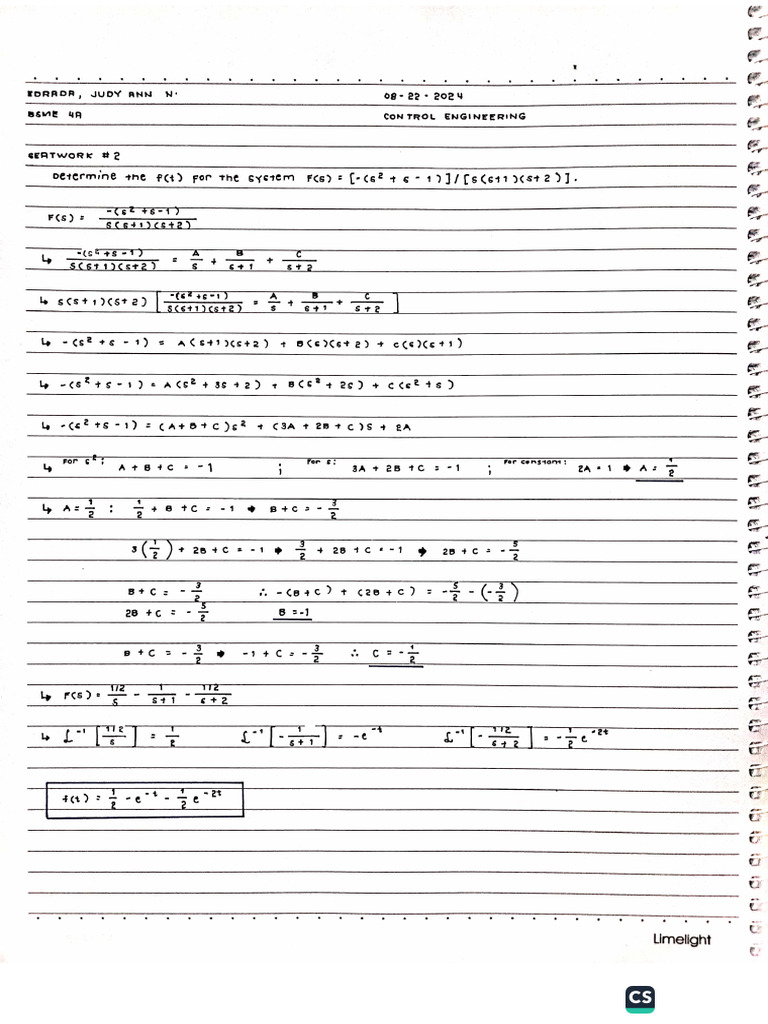 EDRADA, JUDY ANN N. 08-22-2024
BSME 4A CONTROL ENGINEERING
SEATWORK #2
Determine the f(t) for the system F(s) = [-(s² + s - 1)] / [s(s+1)(s+2)].
F(s) = -(s² + s - 1) / s(s+1)(s+2)
↳ -(s² + s - 1) / s(s+1)(s+2) = A/s + B/s+1 + C/s+2
↳ s(s+1)(s+2) [ -(s² + s - 1) / s(s+1)(s+2) = A/s + B/s+1 + C/s+2 ]
↳ -(s² + s - 1) = A(s+1)(s+2) + B(s)(s+2) + C(s)(s+1)
↳ -(s² + s - 1) = A(s² + 3s + 2) + B(s² + 2s) + C(s² + s)
↳ -(s² + s - 1) = (A + B + C)s² + (3A + 2B + C)s + 2A
↳ For s²: A + B + C = -1 ; For s: 3A + 2B + C = -1 ; For constant: 2A = 1 → A = 1/2
↳ A = 1/2 : 1/2 + B + C = -1 → B + C = -3/2
3(1/2) + 2B + C = -1 → 3/2 + 2B + C = -1 → 2B + C = -5/2
B + C = -3/2 ∴ -(B + C) + (2B + C) = -5/2 - (-3/2)
2B + C = -5/2 B = -1
B + C = -3/2 → -1 + C = -3/2 ∴ C = -1/2
↳ F(s) = 1/2/s - 1/s+1 - 1/2/s+2
↳ ℒ⁻¹ [1/2/s] = 1/2 ℒ⁻¹ [-1/s+1] = -e⁻ᵗ ℒ⁻¹ [-1/2/s+2] = -1/2 e⁻²ᵗ
f(t) = 1/2 - e⁻ᵗ - 1/2 e⁻²ᵗ
Limelight
CS